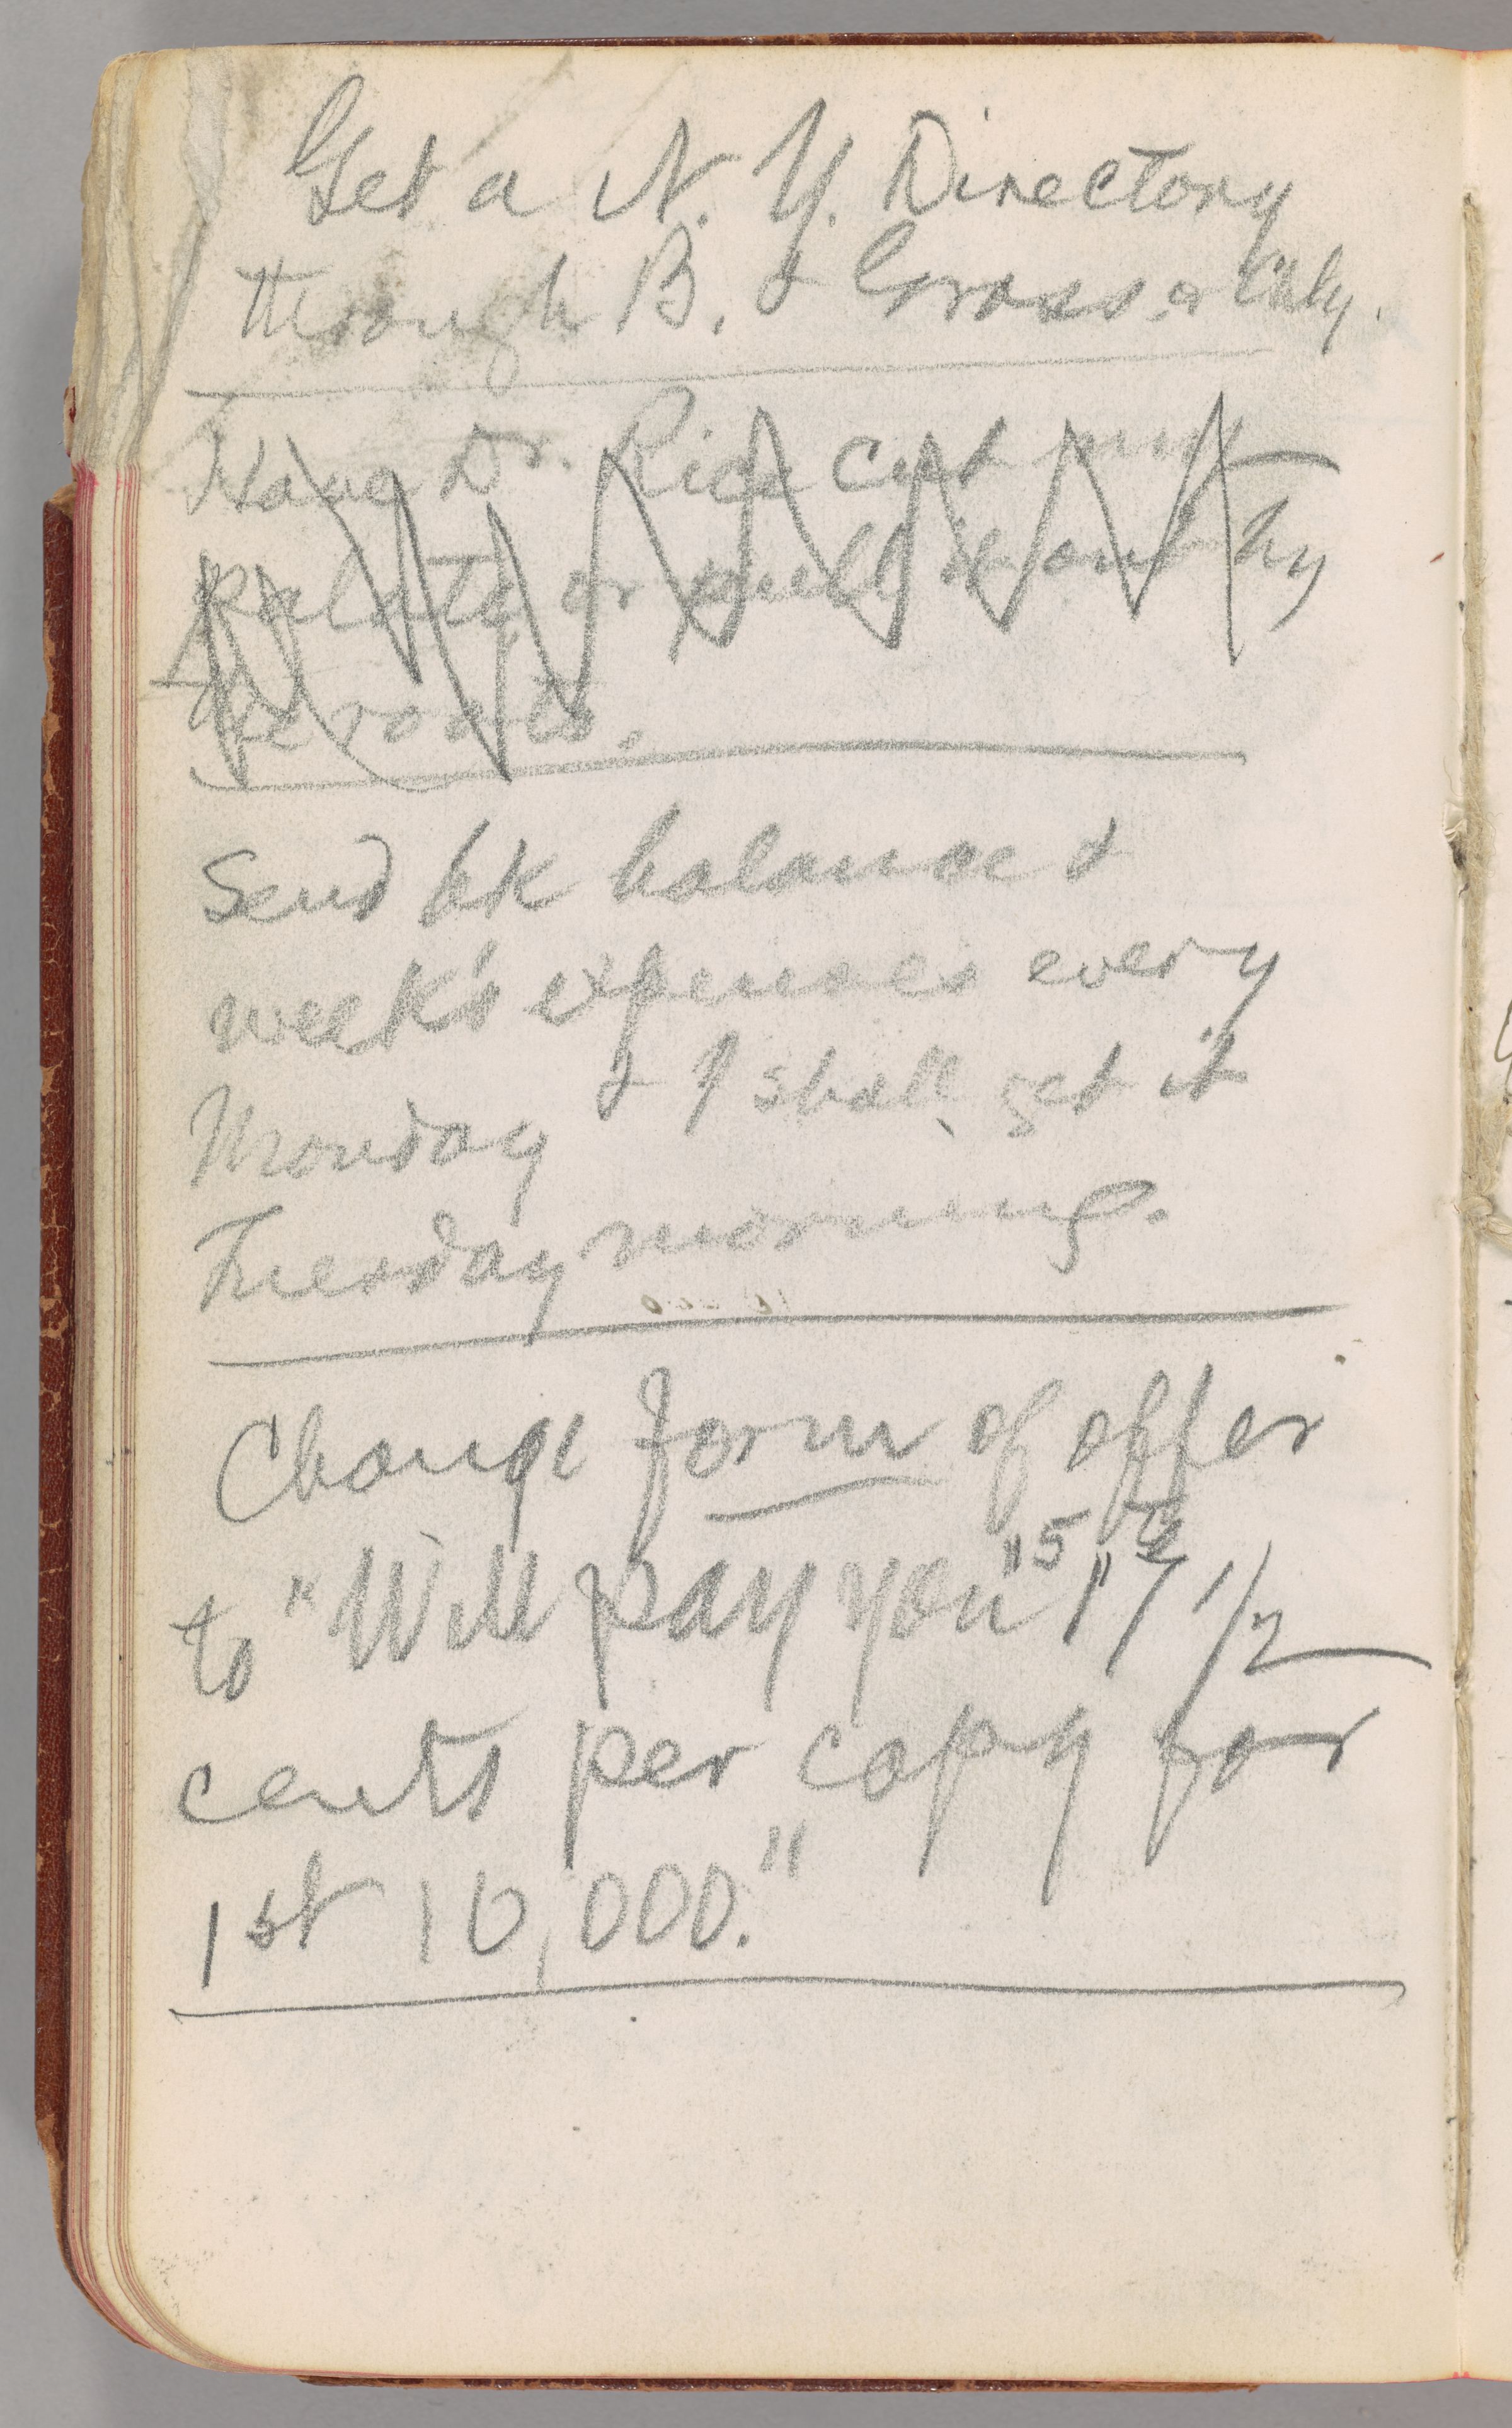 Get a N. Y. Directory
through B. &
Have Dr. Rice cut my
palate or pull it out by
the roots.
Send bk balance &
week's expenses every
Monday & I shall get it
Tuesday morning.
Change form of offer
to "Will pay you "5 1" 7 1/2
cents per copy for
1st 10,000."